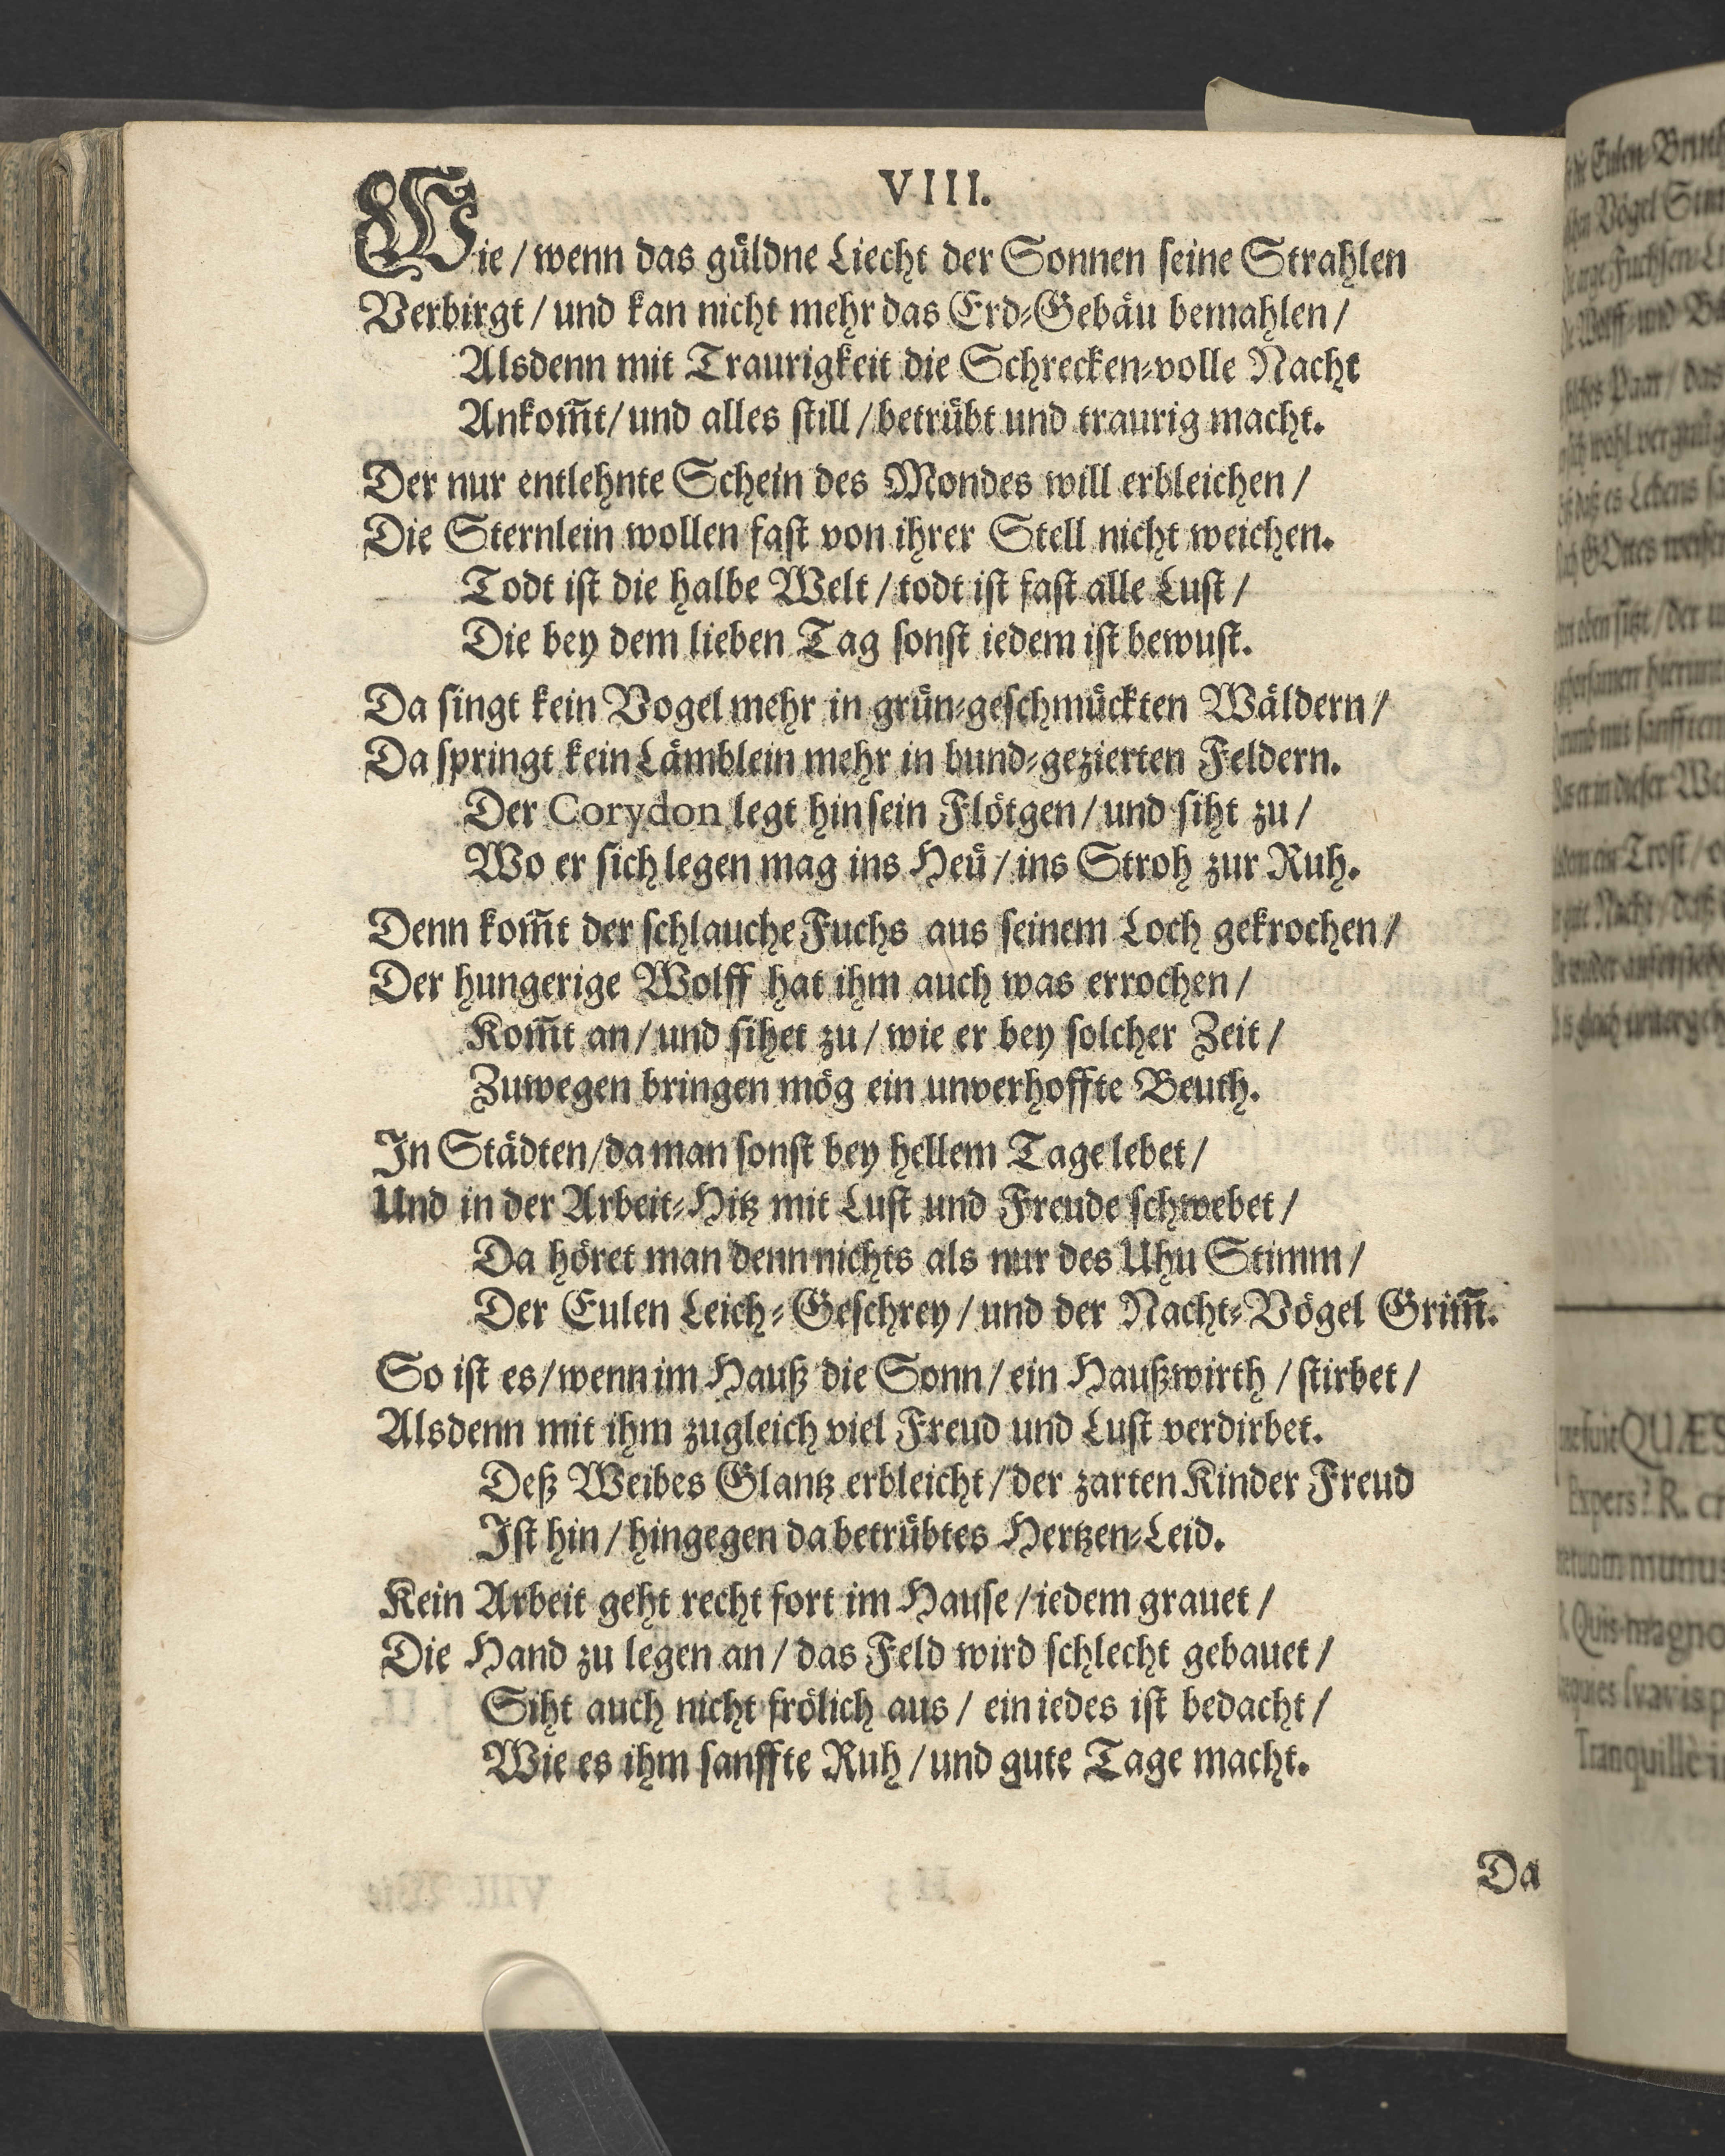 VIII.
Wie / wenn das guͤldne Liecht der Sonnen ſeine Strahlen
Verbirgt / und kan nicht mehr das Erd-Gebaͤu bemahlen /
Alsdenn mit Traurigkeit die Schrecken-volle Nacht
Ankom̃t / und alles ſtill / betruͤbt und traurig macht.
Der nur entlehnte Schein des Mondes will erbleichen /
Die Sternlein wollen faſt von ihrer Stell nicht weichen.
Todt iſt die halbe Welt / todt iſt faſt alle Luſt /
Die bey dem lieben Tag ſonſt iedem iſt bewuſt.
Da ſingt kein Vogel mehr in gruͤn-geſchmuͤckten Waͤldern /
Da ſpringt kein Laͤmblein mehr in bund-gezierten Feldern.
Der Corydon legt hin ſein Floͤtgen / und ſiht zu /
Wo er ſich legen mag ins Heuͤ / ins Stroh zur Ruh.
Denn kom̃t der ſchlauche Fuchs aus ſeinem Loch gekrochen /
Der hungerige Wolff hat ihm auch was errochen /
Kom̃t an / und ſihet zu / wie er bey ſolcher Zeit /
Zuwegen bringen moͤg ein unverhoffte Beuth.
In Staͤdten / da man ſonſt bey hellem Tage lebet /
Und in der Arbeit-Hitz mit Luſt und Freude ſchwebet /
Da hoͤret man denn nichts als nur des Uhu Stimm /
Der Eulen Leich-Geſchrey / und der Nacht-Voͤgel Grim̃.
So iſt es / wenn im Hauß die Sonn / ein Haußwirth / ſtirbet /
Alsdenn mit ihm zugleich viel Freud und Luſt verdirbet.
Deß Weibes Glantz erbleicht / der zarten Kinder Freud
Iſt hin / hingegen da betruͤbtes Hertzen-Leid.
Kein Arbeit geht recht fort im Hauſe / iedem grauet /
Die Hand zu legen an / das Feld wird ſchlecht gebauet /
Siht auch nicht froͤlich aus / ein iedes iſt bedacht /
Wie es ihm ſanffte Ruh / und gute Tage macht.
Da